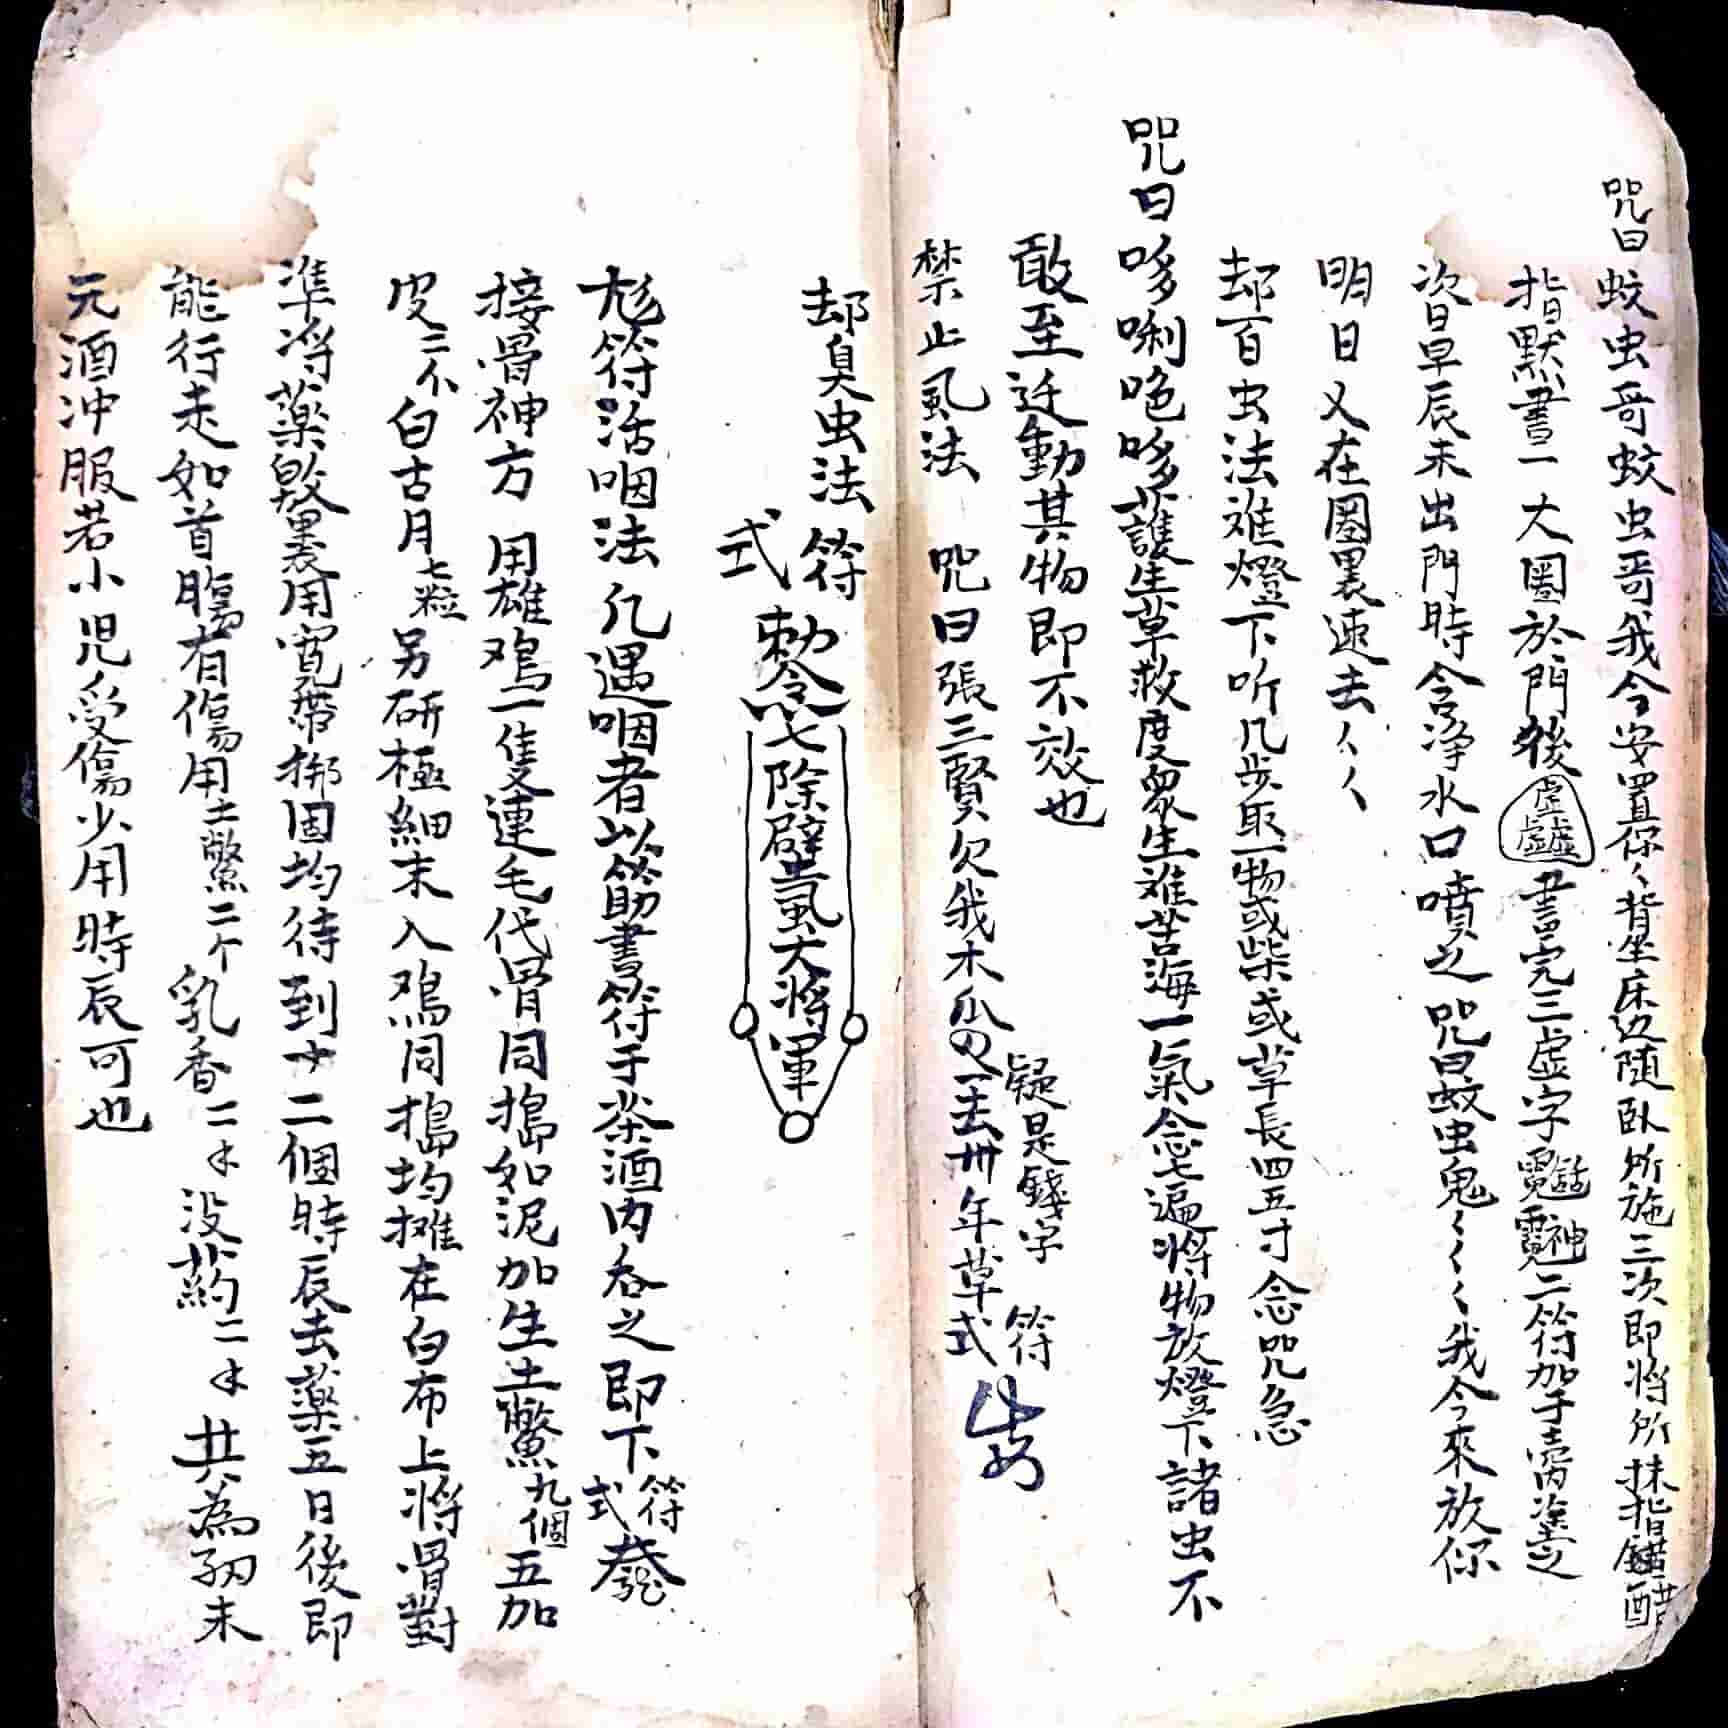 咒曰蚊虫哥蚊虫哥我今安置你〻背坐床边随卧所施三次即将所抹指醋
指默書一大圈於門後虛虛虛書完三虛字二符加于壳内塗之
次日早辰未出門時含净水口噴之咒曰蚊虫鬼〻〻〻我今來放你
明日又在圈裏速去〻〻
却百虫法难燈下听几步取一物或柴或草長四五寸念咒急
咒曰哆唎哆護生草救度衆生难苦海一氣念七遍将物放燈下諸虫不
敢至迁動其物即不效也
禁止虱法 咒曰張三賢欠我木瓜去卅年草式
疑是錢字 符
却臭虫法符
式
勅令七除壁虱大将軍
符活咽法凡遇咽者以筯書符于茶酒内吞之即下符式
接骨神方 用雄鸡一隻連毛代骨同搗如泥加生土鱉九個五加
皮二个白古月七粒另研極細末入鸡同搗均摊在白布上将骨對
準将藥裏用寛帶挷固均待到十二個時辰去藥五日後即
能行走如首膓有傷用土鱉二个乳香二水没藥二水共為細末
元酒冲服若小児受傷少用時辰可也